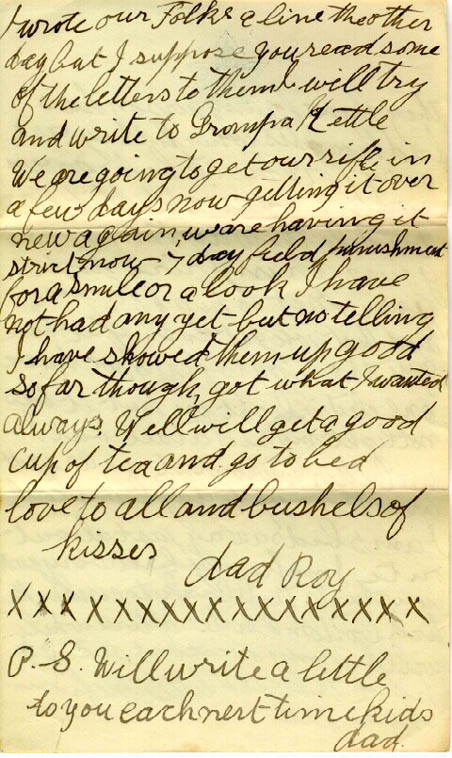 I wrote our Folks a line the other
day but I suppose you read some
of the letters to them I will try
and write to Grompa Kettle
We are going to get our rifle in
a few days now getting it over
new again, we are having it
strict now 7 day field punishment
for a smile or a look I have
not had any yet but no telling
I have showed them up good
so far though, got what I wanted
always. Well will get a good
cup of tea and go to bed
love to all and bushels of
kisses
dad Roy
XXXXXXXXXXXXXXXXX
P.S. Will write a little
to you each next time kids
dad.